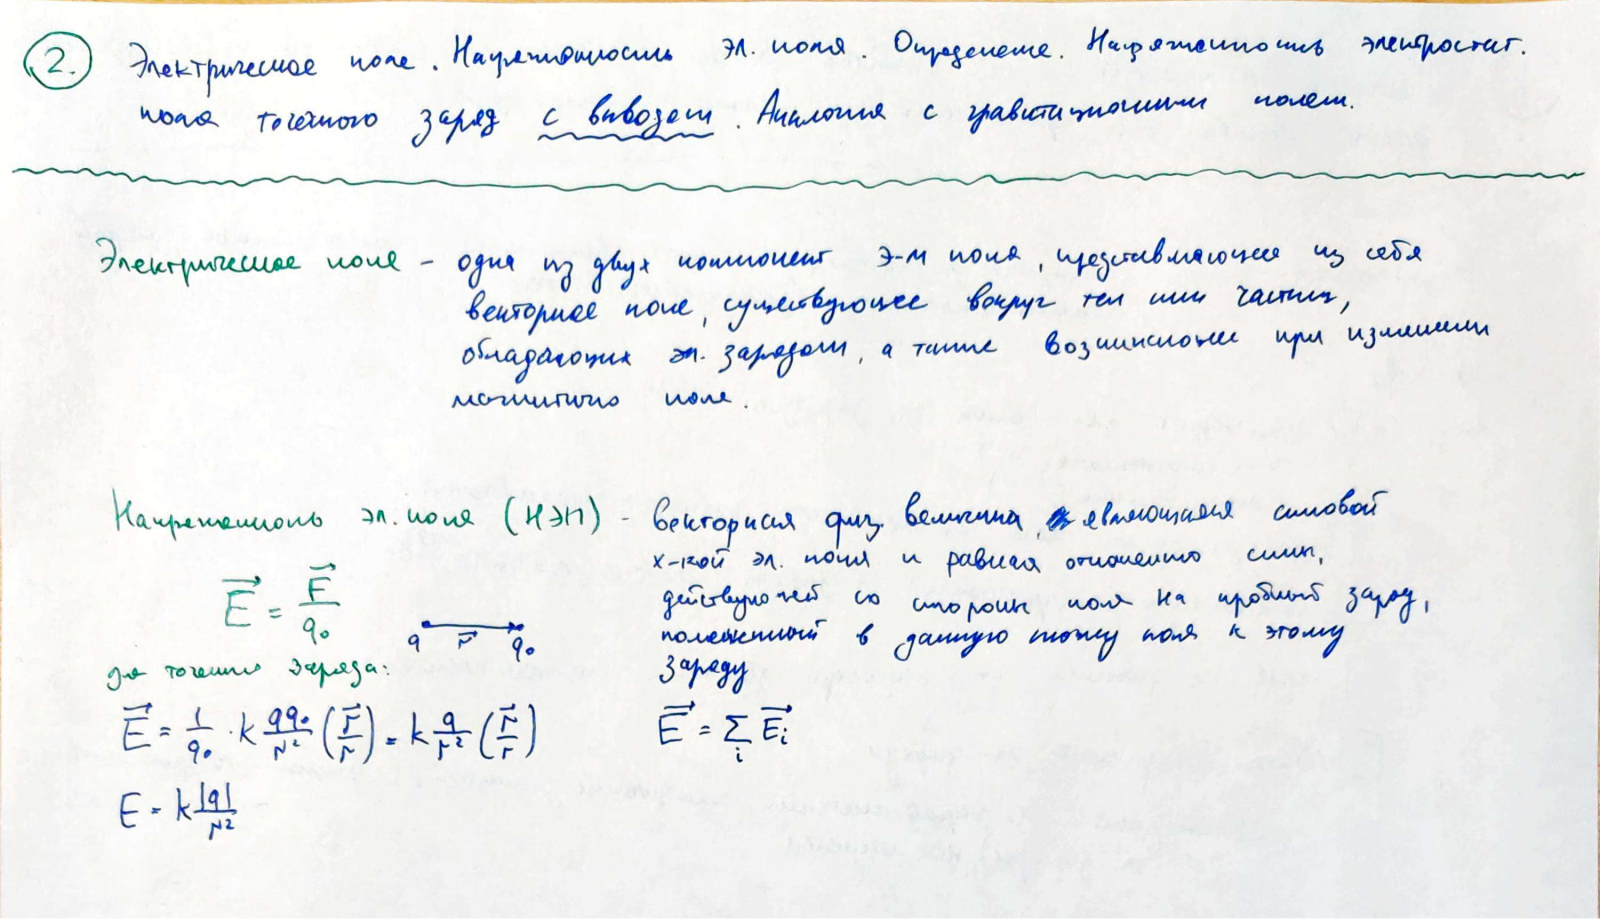 2. Электрическое поле. Напряжённость эл. поля. Определение. Напряженность электростат.
поля точечного заряд с выводом. Аналогия с гравитационным полем.
Электрическое поле - одна из двух компонент э-м поля, представляющее из себя
векторное поле, существующее вокруг тел или частиц,
обладающих эл. зарядом, а также возникающее при изменении
магнитного поля.
Напряженность эл. поля (НЭП) - векторная физ. величина, являющаяся силовой
х-кой эл. поля и равная отношению силы,
действующей со стороны поля на пробный заряд,
положенный в данную точку поля к этому
заряду
E⃗ = F⃗/q₀
q r⃗ q₀
для точечного заряда:
E⃗ = 1/q₀ · k qq₀/r² (r⃗/r) = k q/r² (r⃗/r)
E⃗ = Σᵢ E⃗ᵢ
E = k |q|/r²